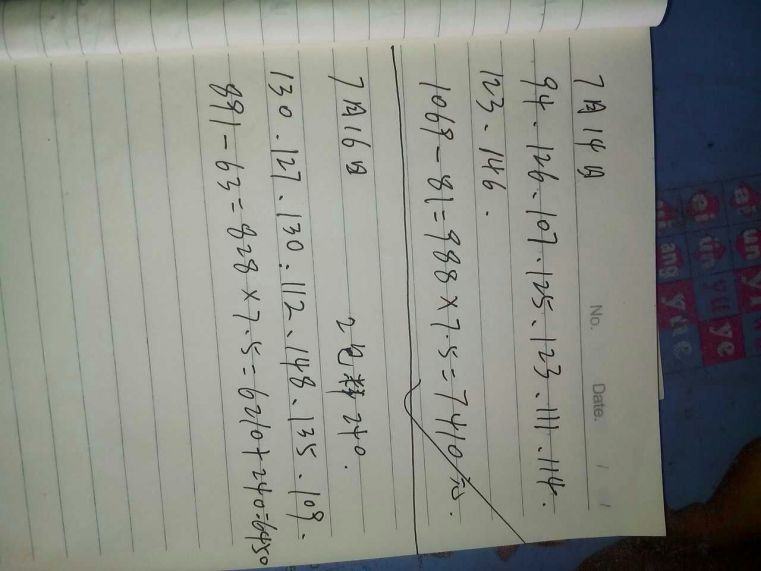 No.
Date.
7月14日
94. 126. 107. 125. 123. 111. 114.
123. 146.
1069-81=988×7.5=7410元.
7月16日 2包料240.
130. 127. 130. 112. 148. 135. 109.
891-63=828×7.5=6210+240=6450